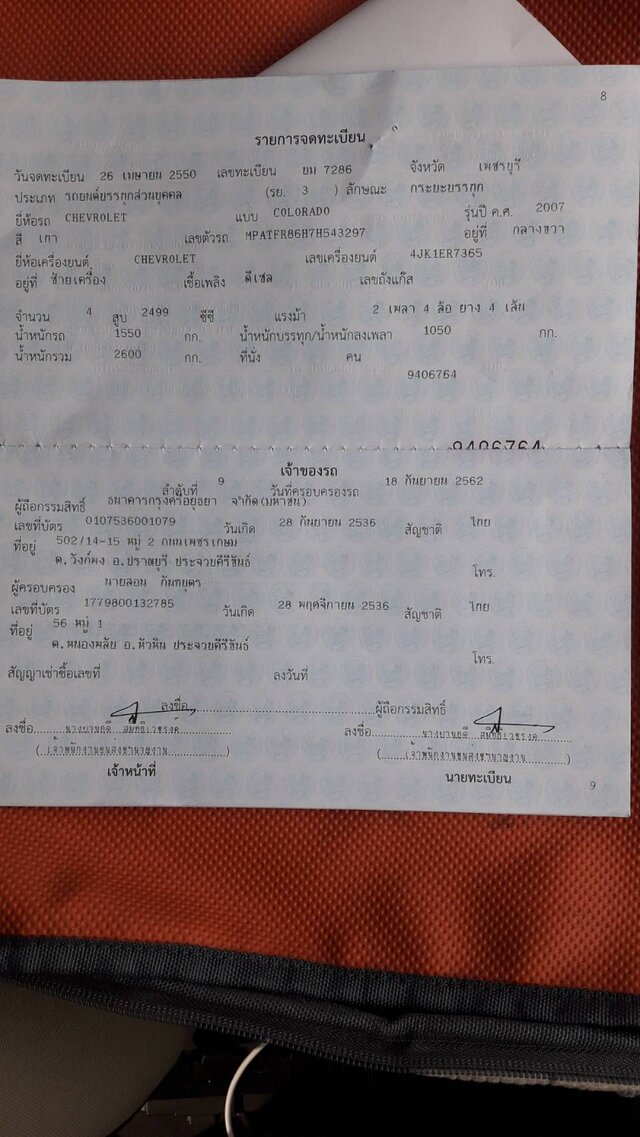 8
รายการจดทะเบียน
วันจดทะเบียน 26 เมษายน 2550 เลขทะเบียน ยม 7286 จังหวัด เพชรบุรี
ประเภท รถยนต์บรรทุกส่วนบุคคล (รย. 3 ) ลักษณะ กระบะบรรทุก
ยี่ห้อรถ CHEVROLET แบบ COLORADO รุ่นปี ค.ศ. 2007
สี เทา เลขตัวรถ MPATFR86H7H543297 อยู่ที่ กลางขวา
ยี่ห้อเครื่องยนต์ CHEVROLET เลขเครื่องยนต์ 4JK1ER7365
อยู่ที่ ซ้ายเครื่อง เชื้อเพลิง ดีเซล เลขถังแก๊ส
จำนวน 4 สูบ 2499 ซีซี แรงม้า 2 เพลา 4 ล้อ ยาง 4 เส้น
น้ำหนักรถ 1550 กก. น้ำหนักบรรทุก/น้ำหนักลงเพลา 1050 กก.
น้ำหนักรวม 2600 กก. ที่นั่ง คน
9406764
9406764
เจ้าของรถ
ลำดับที่ 9 วันที่ครอบครองรถ 18 กันยายน 2562
ผู้ถือกรรมสิทธิ์ ธนาคารกรุงศรีอยุธยา จำกัด(มหาชน)
เลขที่บัตร 0107536001079 วันเกิด 28 กันยายน 2536 สัญชาติ ไทย
ที่อยู่ 502/14-15 หมู่ 2 ถนนเพชรเกษม
ต.วังก์พง อ.ปราณบุรี ประจวบคีรีขันธ์ โทร.
ผู้ครอบครอง นายสอน กันทบุตร
เลขที่บัตร 1779800132785 วันเกิด 28 พฤศจิกายน 2536 สัญชาติ ไทย
ที่อยู่ 56 หมู่ 1
ต.หนองพลับ อ.หัวหิน ประจวบคีรีขันธ์ โทร.
สัญญาเช่าซื้อเลขที่ ลงวันที่
ลงชื่อ ผู้ถือกรรมสิทธิ์
ลงชื่อ ลงชื่อ
(เจ้าพนักงานขนส่งชำนาญงาน) (เจ้าพนักงานขนส่งชำนาญงาน)
เจ้าหน้าที่ นายทะเบียน
9